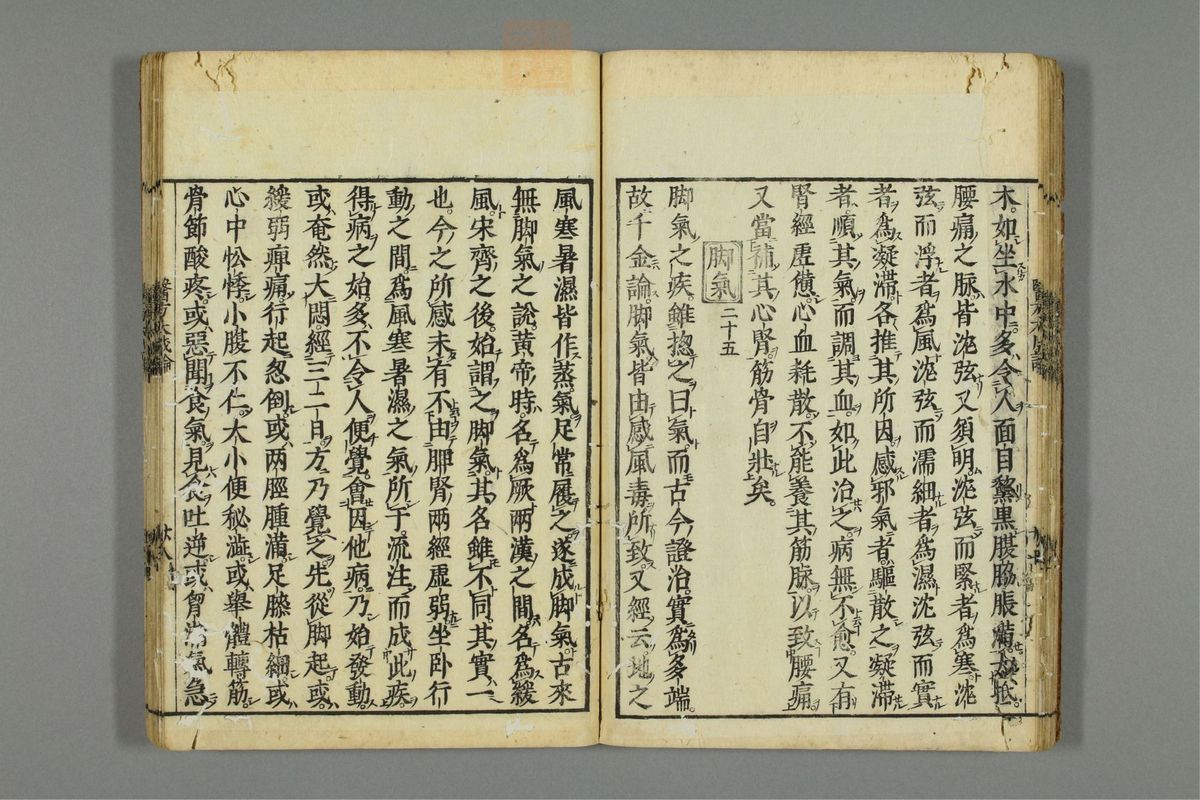 木如坐水中多令人面目黧黒腹脇脹滿大抵
腰痛之脉皆沈弦又須明沈弦而緊者為寒沈
弦而浮者為風沈弦而濡細者為濕沈弦而實
者為凝滞各推其所因感邪氣者驅散之凝滞
者順其氣而調其血如此治之病無不愈又有
腎經虚憊心血耗散不能養其筋脉以致腰痛
又當補其心腎筋骨自壯矣
脚氣 二十五
脚氣之疾雖揔之曰氣而古今證治實為多端
故千金論脚氣皆由感風毒所致又經云地之
風寒暑濕皆作蒸氣足常履之遂成脚氣古來
無脚氣之說黄帝時名為厥兩漢之間名為緩
風宋齊之後始謂之脚氣其名雖不同其實一
也今之所感未有不由脾腎兩經虚弱坐卧行
動之間為風寒暑濕之氣所干流注而成此疾
得病之始多不令人便覺會因他病乃始發動
或奄然大悶經三二日方乃覺之先從脚起或
緩弱痺痛行起忽倒或兩脛腫滿足膝枯細或
心中忪悸小腹不仁大小便秘澁或舉體轉筋
骨節酸疼或惡聞食氣見食吐逆或胷滿氣急